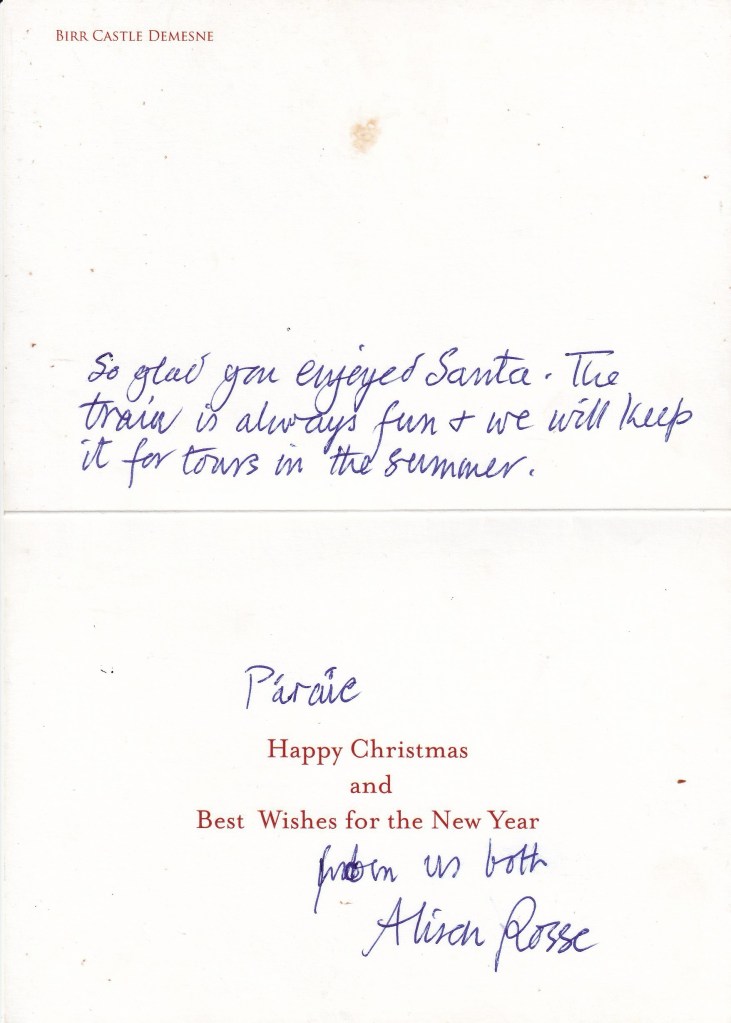 BIRR CASTLE DEMESNE
So glad you enjoyed Santa. The
train is always fun + we will keep
it for tours in the summer.
Páraic
Happy Christmas
and
Best Wishes for the New Year
from us both
Alison Rosse